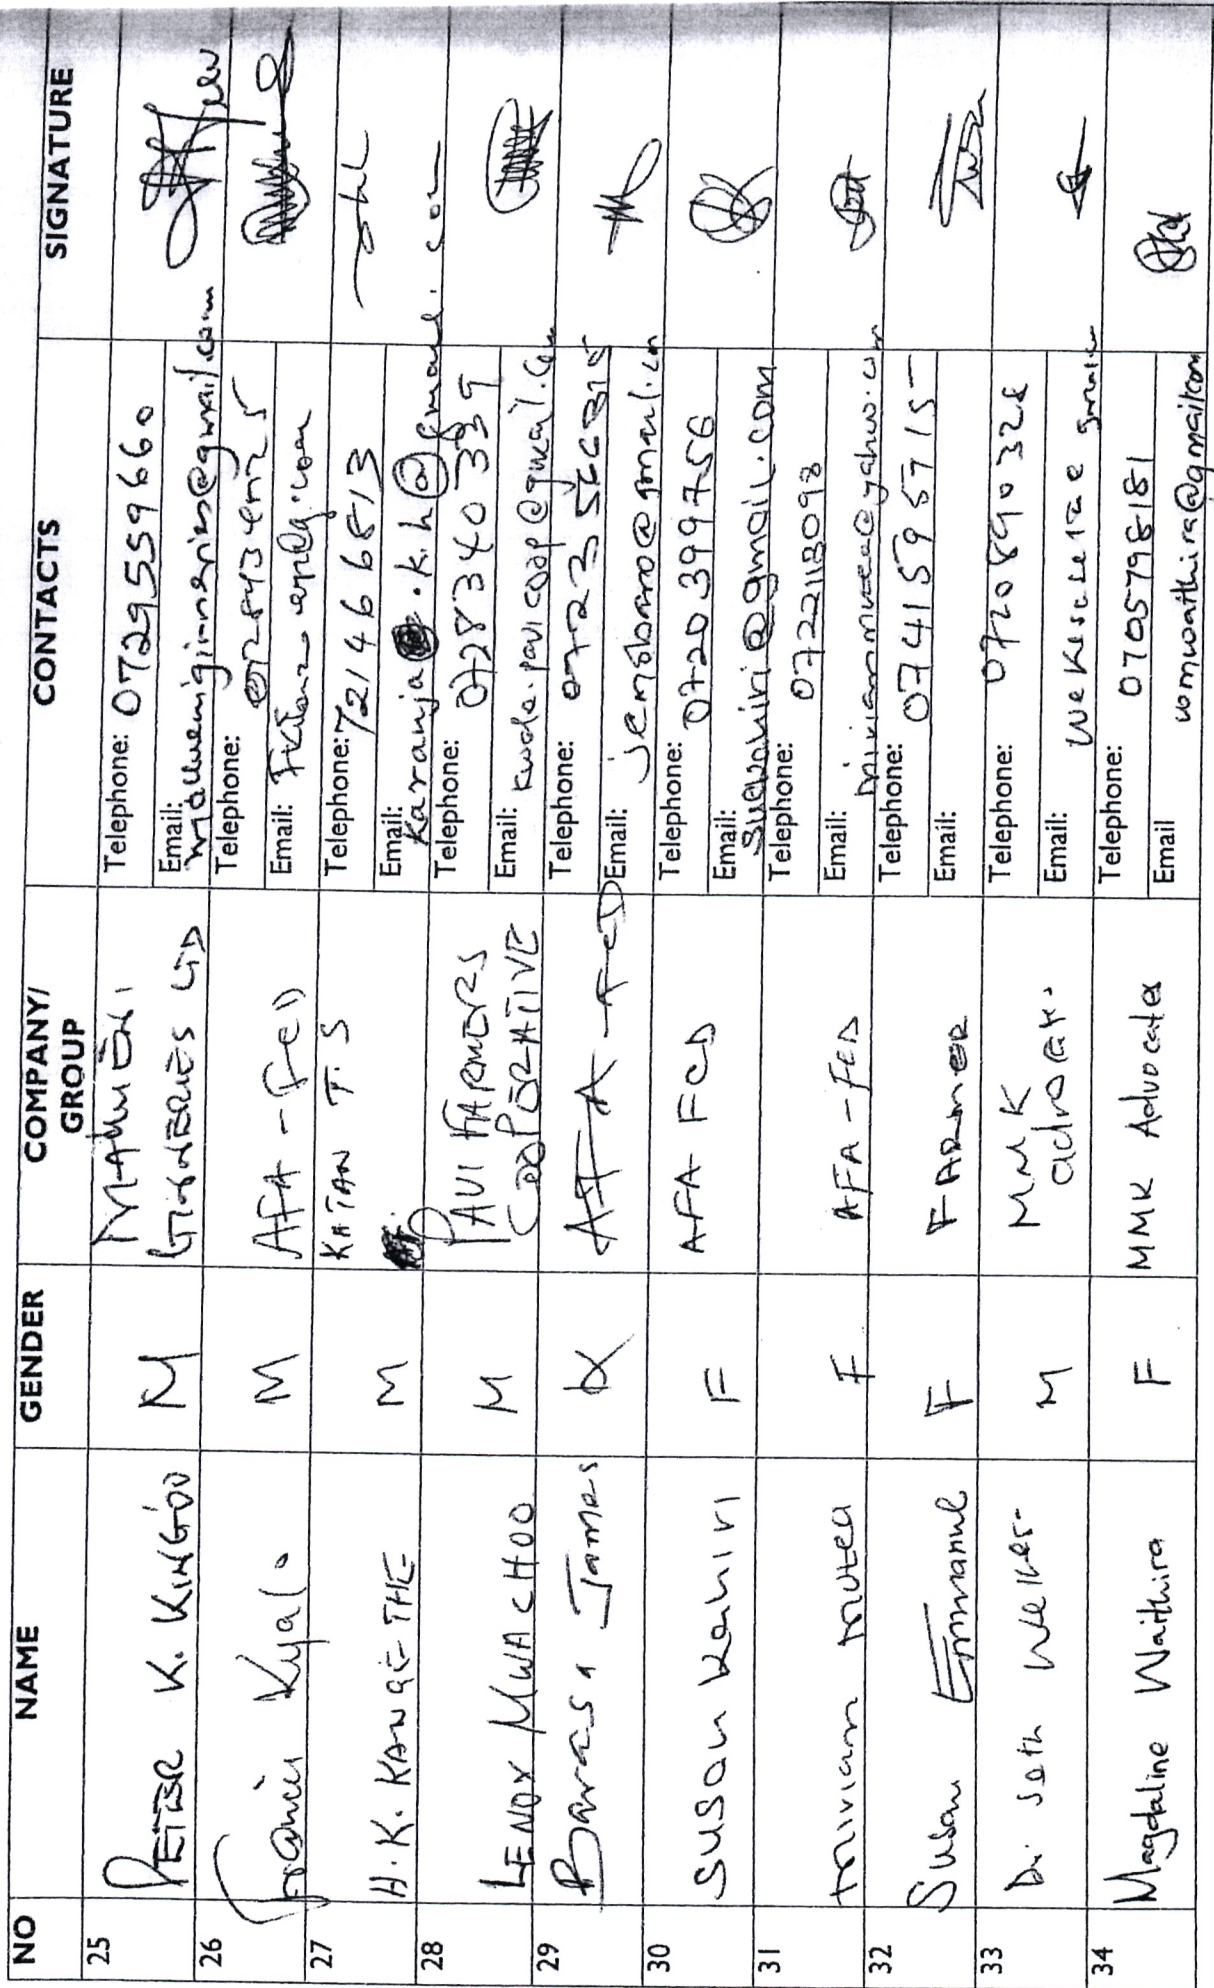 NO NAME GENDER COMPANY/ GROUP CONTACTS SIGNATURE
25 PETER K. KINGÓO M MAWENI GINNERIES LTD Telephone: 0729559660
Email: maweniginneries@gmail.com
26 Francis Kyalo M AFA-FCD Telephone:
Email:
27 H. K. KANGETHE M KATAN T.S Telephone: 721466513
Email: Karanja.k.h@gmail.com
28 LENOX MWACHOO M PAVI FARMERS COOPERATIVE Telephone: 0728340339
Email: kwale.pavicoop@gmail.com
29 Barasa James AFA-FCD Telephone:
Email:
30 SUSAN Kahiri F AFA FCD Telephone: 0720399756
Email: Suekahiri@gmail.com
31 miriam mutea F AFA-FCD Telephone: 0722113098
Email: miriammutea@yahoo.com
32 Susan Emmanuel F FARMER Telephone:
Email:
33 Dr. Seth M MMK Telephone: 0720890328
Email:
34 Magdaline Waithira F MMK Advocates Telephone: 0705798181
Email